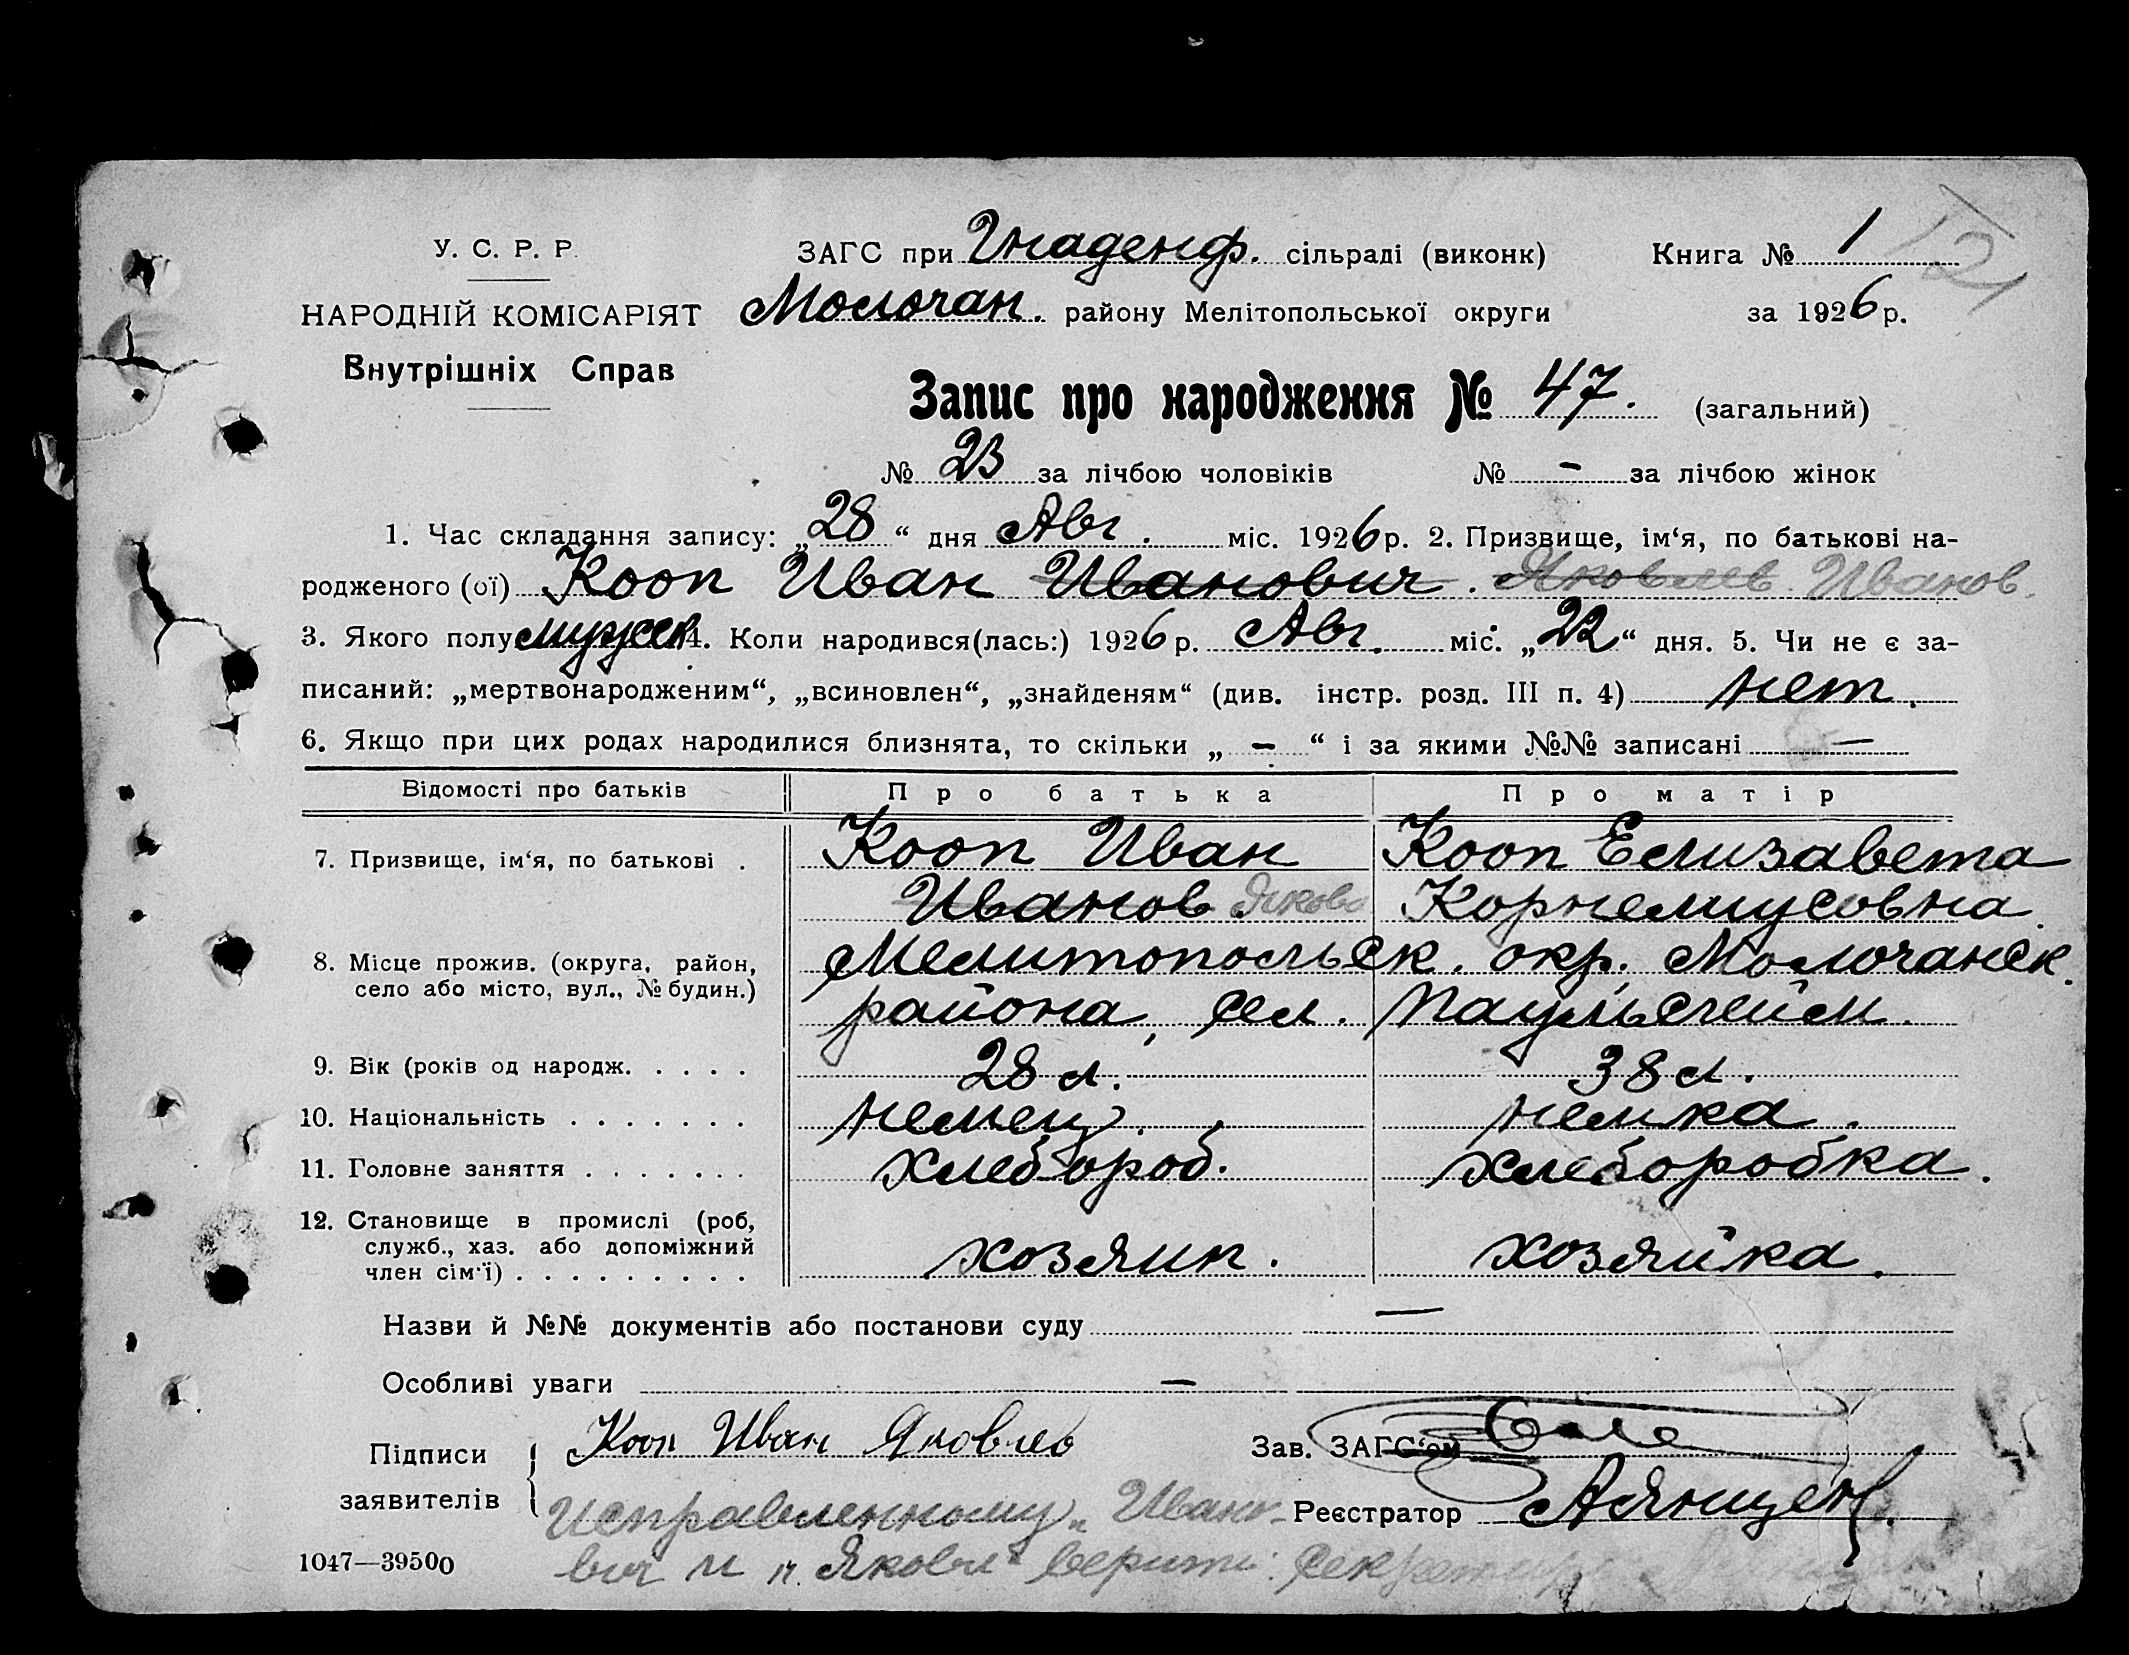 У. С. Р. Р.
НАРОДНІЙ КОМІСАРІЯТ
Внутрішніх Справ
ЗАГС при Гнаденф. сільраді (виконк)
Молочан. району Мелітопольської округи
Книга № 1
за 1926 р.
Запис про народження № 47. (загальний)
№ 23 за лічбою чоловіків № – за лічбою жінок
1. Час складання запису: „28“ дня Авг. міс. 1926 р. 2. Призвище, ім‘я, по батькові на-
родженого (ої) Кооп Иван Иванович. Яковлев Иванов.
3. Якого полу мужск 4. Коли народився(лась:) 1926 р. Авг. міс. „22“ дня. 5. Чи не є за-
писаний: „мертвонародженим“, „всиновлен“, „знайденям“ (див. інстр. розд. III п. 4) нет.
6. Якщо при цих родах народилися близнята, то скільки „ – “ і за якими №№ записані —
Відомості про батьків Про батька Про матір
7. Призвище, ім‘я, по батькові . Кооп Иван Кооп Елизавета
Иванов Яковл Корнелиусовна.
8. Місце прожив. (округа, район, Мелитопольск. окр. Молочанск.
село або місто, вул., № будин.) района, сел. Паульсгейм.
9. Вік (років од народж. . . . . 28 л. 38 л.
10. Національність . . . . . . . немец. немка.
11. Головне заняття . . . . . . . хлебороб. хлеборобка.
12. Становище в промислі (роб,
служб., хаз. або допоміжний хозяин. хозяйка.
член сім‘ї) . . . . . . . . .
Назви й №№ документів або постанови суду —
Особливі уваги –
Підписи Кооп Иван Яковлев Зав. ЗАГС‘ом
заявителів Исправленному „Ивано- Реєстратор
вич и п. Яковл“ верить: Секретарь
1047—39500